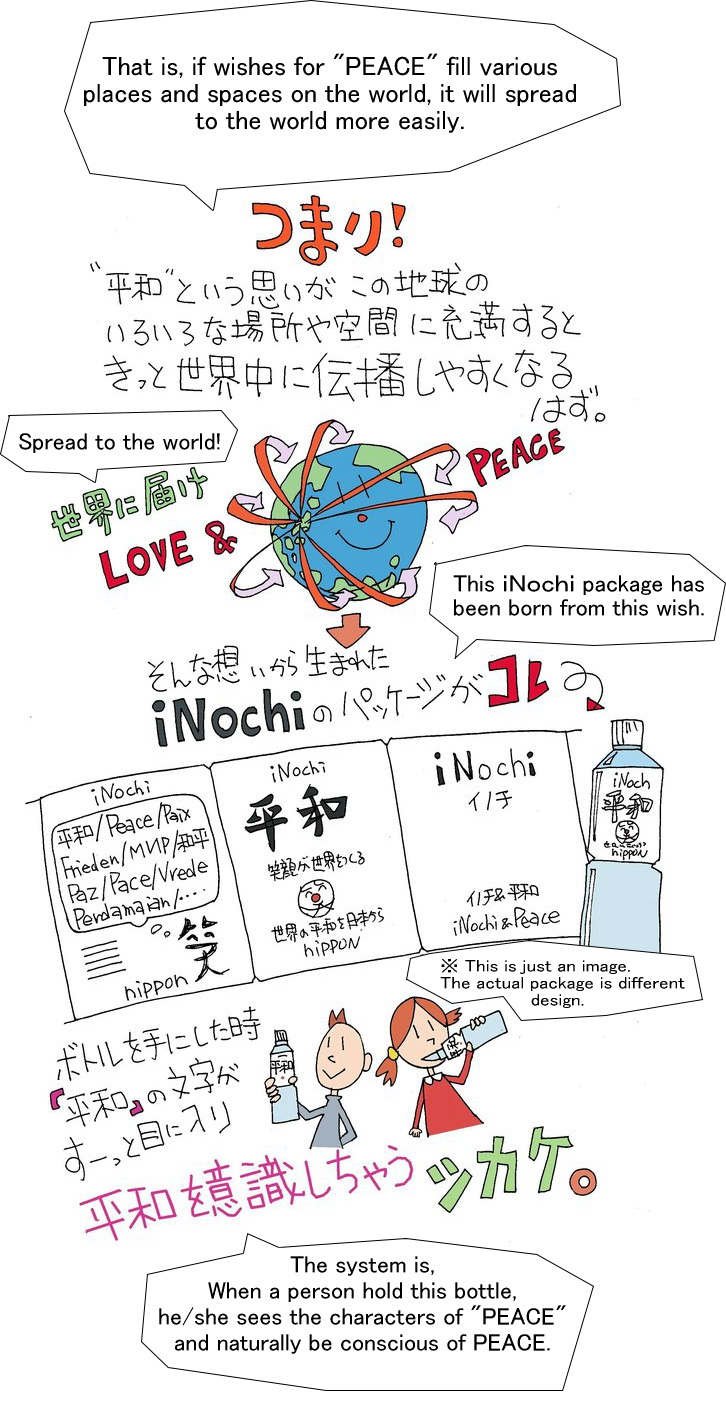 That is, if wishes for "PEACE" fill various
places and spaces on the world, it will spread
to the world more easily.
つまり!
"平和"という思いがこの地球の
いろいろな場所や空間に充満すると
きっと世界中に伝播しやすくなる
はず。
Spread to the world!
世界に届け
LOVE & PEACE
This iNochi package has
been born from this wish.
そんな想いから生まれた
iNochiのパッケージがコレ
iNochi
平和/Peace/Paix
Frieden/МИР/和平
Paz/Pace/Vrede
Perdamaian/....
笑
nippon
iNochi
平和
笑顔が世界をつくる
世界の平和を日本から
nippon
iNochi
イノチ
イノチ&平和
iNochi&Peace
iNoch
平和
笑
nippon
※ This is just an image.
The actual package is different
design.
ボトルを手にした時
『平和』の文字が
すーっと目に入り
平和
平和を意識しちゃうツカケ。
The system is,
When a person hold this bottle,
he/she sees the characters of "PEACE"
and naturally be conscious of PEACE.